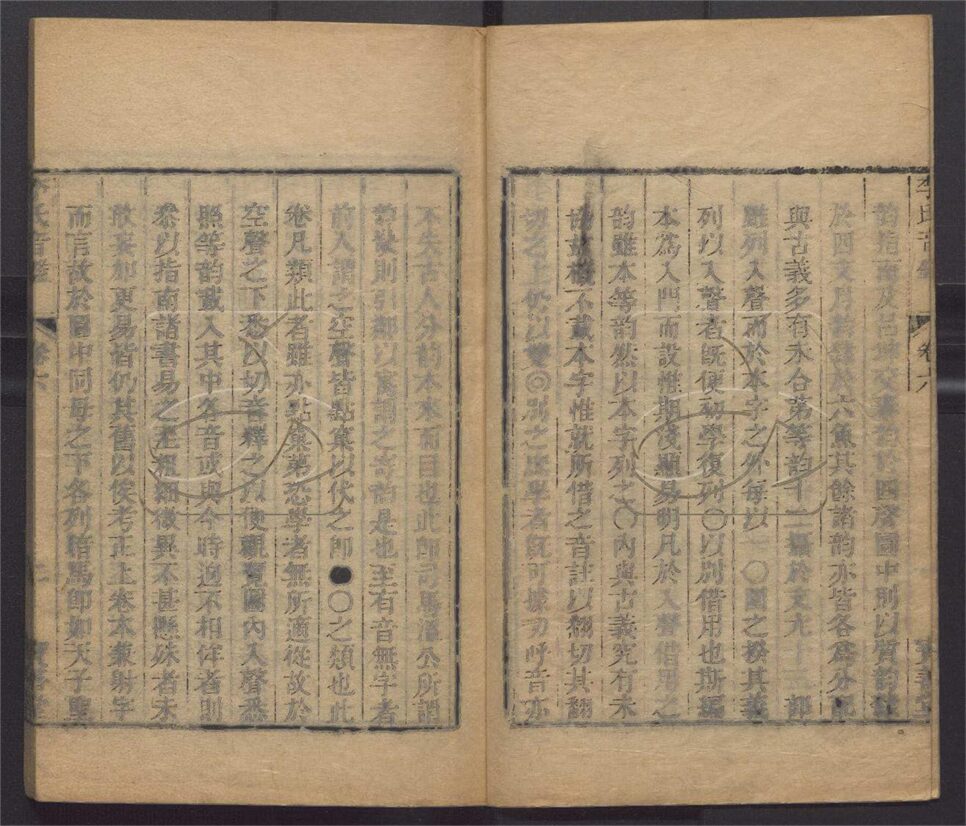 韵指南及呂
於四支月韵
於六魚其餘諸韵亦皆各爲分配
與古義多有未合第等韵十二攝於
雖列入聲而於本字之外每以一〇圍之揆其義
列以入聲者旣便初學復列〇以別借用也斯編
本爲入門而設惟期淺顯易明凡於入聲借用之
韵雖本等韵然以本字列之〇內與古義究有未
協故槪不載本字惟就所借之音註以翻切其翻
切之上仍以雙◎別之庶學者旣可據切呼音亦
不失古人分韵本來面目也此卽司馬溫公所謂
韵缺則引鄰以寓謂之寄韵是也至有音無字者
前人謂之空聲皆點窠以代之卽●〇之類也此
卷凡類此者雖亦點窠第恐學者無所適從故於
空聲之下悉以切音釋之以便觀覽圖內入聲悉
照等韵載入其中各音或與今時迥不相侔者則
叅以指南諸書易之至粗細微異不甚懸殊者未
敢妄加更易皆仍其舊以俟考正上卷本兼射字
而言故於圖中同母之下各列暗馬卽如天子聖
李氏音鑑
卷六